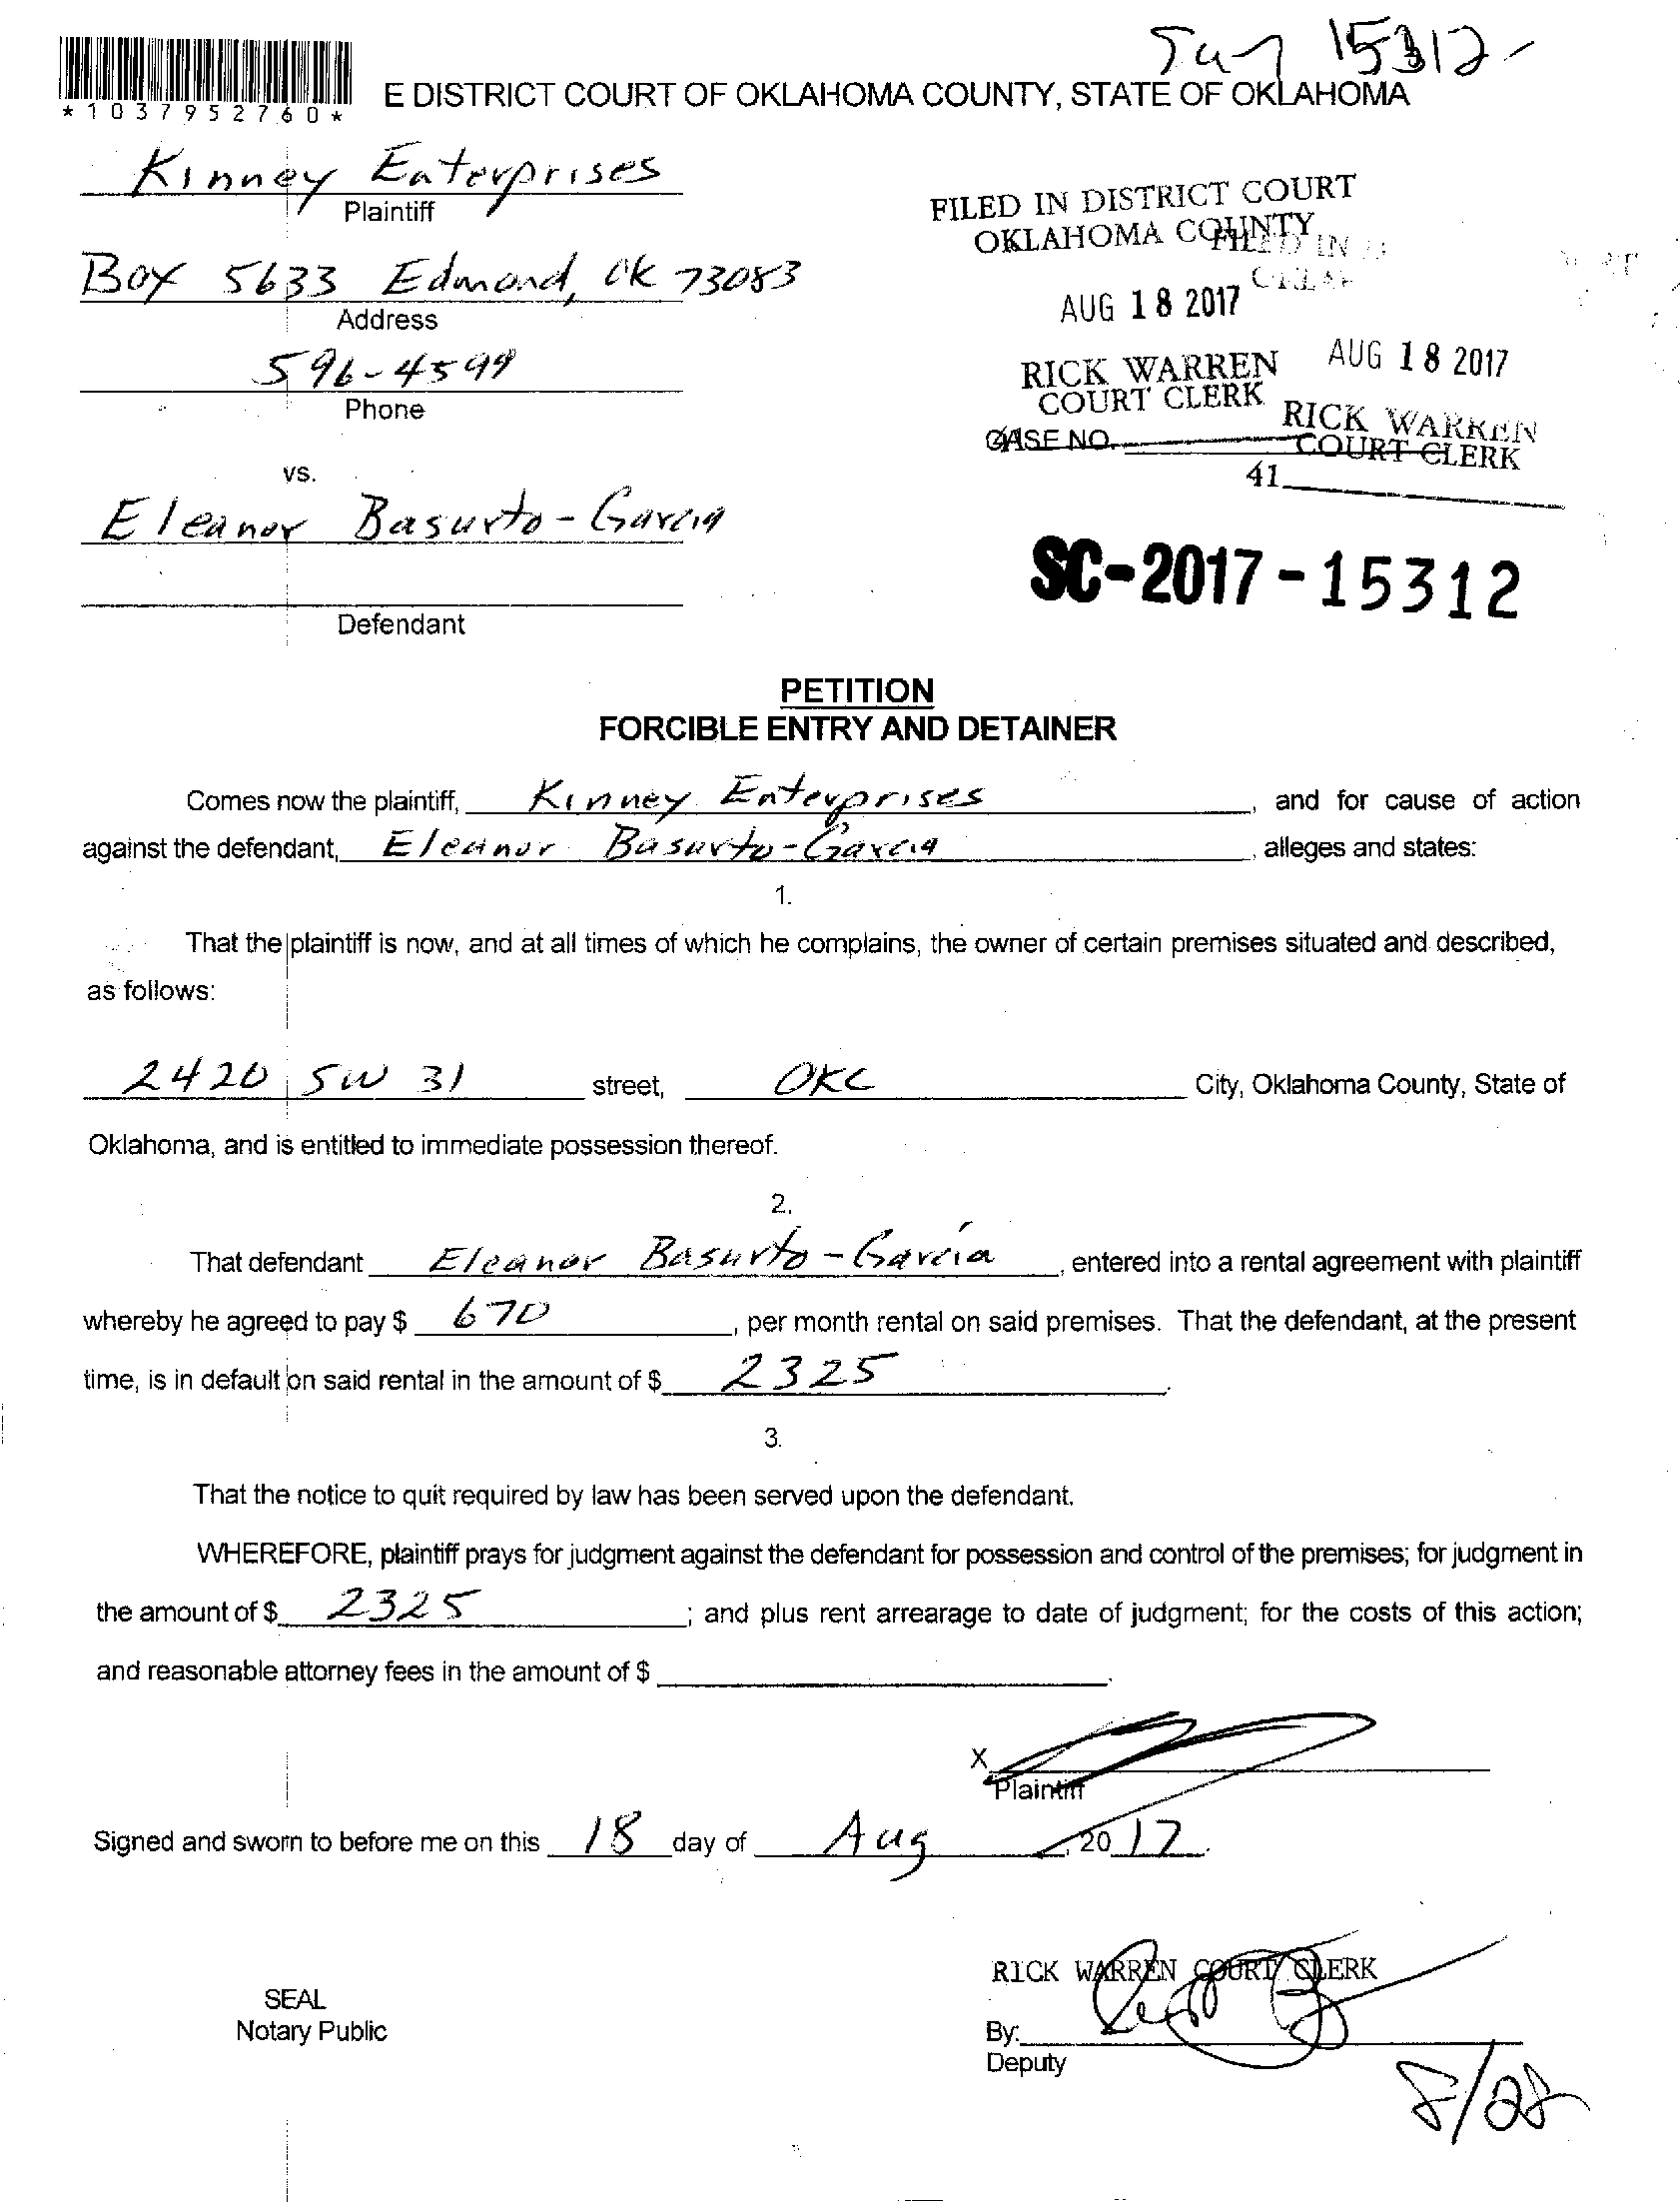 15312
*1037952760*
E DISTRICT COURT OF OKLAHOMA COUNTY, STATE OF OKLAHOMA
Kinney Enterprises
Plaintiff
FILED IN DISTRICT COURT
OKLAHOMA COUNTY
FILED IN
Box 5633 Edmond, OK 73083
Address
AUG 18 2017
596-4599
Phone
RICK WARREN
COURT CLERK
AUG 18 2017
RICK WARREN
COURT CLERK
CASE NO.
41
vs.
Eleanor Basurto-Garcia
Defendant
SC-2017-15312
PETITION
FORCIBLE ENTRY AND DETAINER
Comes now the plaintiff, Kinney Enterprises, and for cause of action
against the defendant, Eleanor Basurto-Garcia, alleges and states:
1.
That the plaintiff is now, and at all times of which he complains, the owner of certain premises situated and described,
as follows:
2420 SW 31 street, OKC City, Oklahoma County, State of
Oklahoma, and is entitled to immediate possession thereof.
2.
That defendant Eleanor Basurto-Garcia, entered into a rental agreement with plaintiff
whereby he agreed to pay $ 670, per month rental on said premises. That the defendant, at the present
time, is in default on said rental in the amount of $ 2325.
3.
That the notice to quit required by law has been served upon the defendant.
WHEREFORE, plaintiff prays for judgment against the defendant for possession and control of the premises; for judgment in
the amount of $ 2325; and plus rent arrearage to date of judgment; for the costs of this action;
and reasonable attorney fees in the amount of $ .
X
Plaintiff
Signed and sworn to before me on this 18 day of Aug, 2017.
RICK WARREN COURT CLERK
SEAL
Notary Public
By:
Deputy
8/28